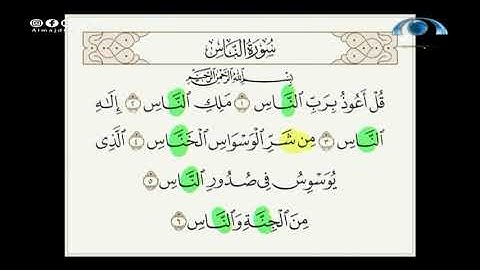 Almajd
سُورَةُ النَّاسِ
بِسْمِ اللَّهِ الرَّحْمَٰنِ الرَّحِيمِ
قُلْ أَعُوذُ بِرَبِّ النَّاسِ ١ مَلِكِ النَّاسِ ٢ إِلَٰهِ
النَّاسِ ٣ مِن شَرِّ الْوَسْوَاسِ الْخَنَّاسِ ٤ الَّذِي
يُوَسْوِسُ فِي صُدُورِ النَّاسِ ٥
مِنَ الْجِنَّةِ وَالنَّاسِ ٦